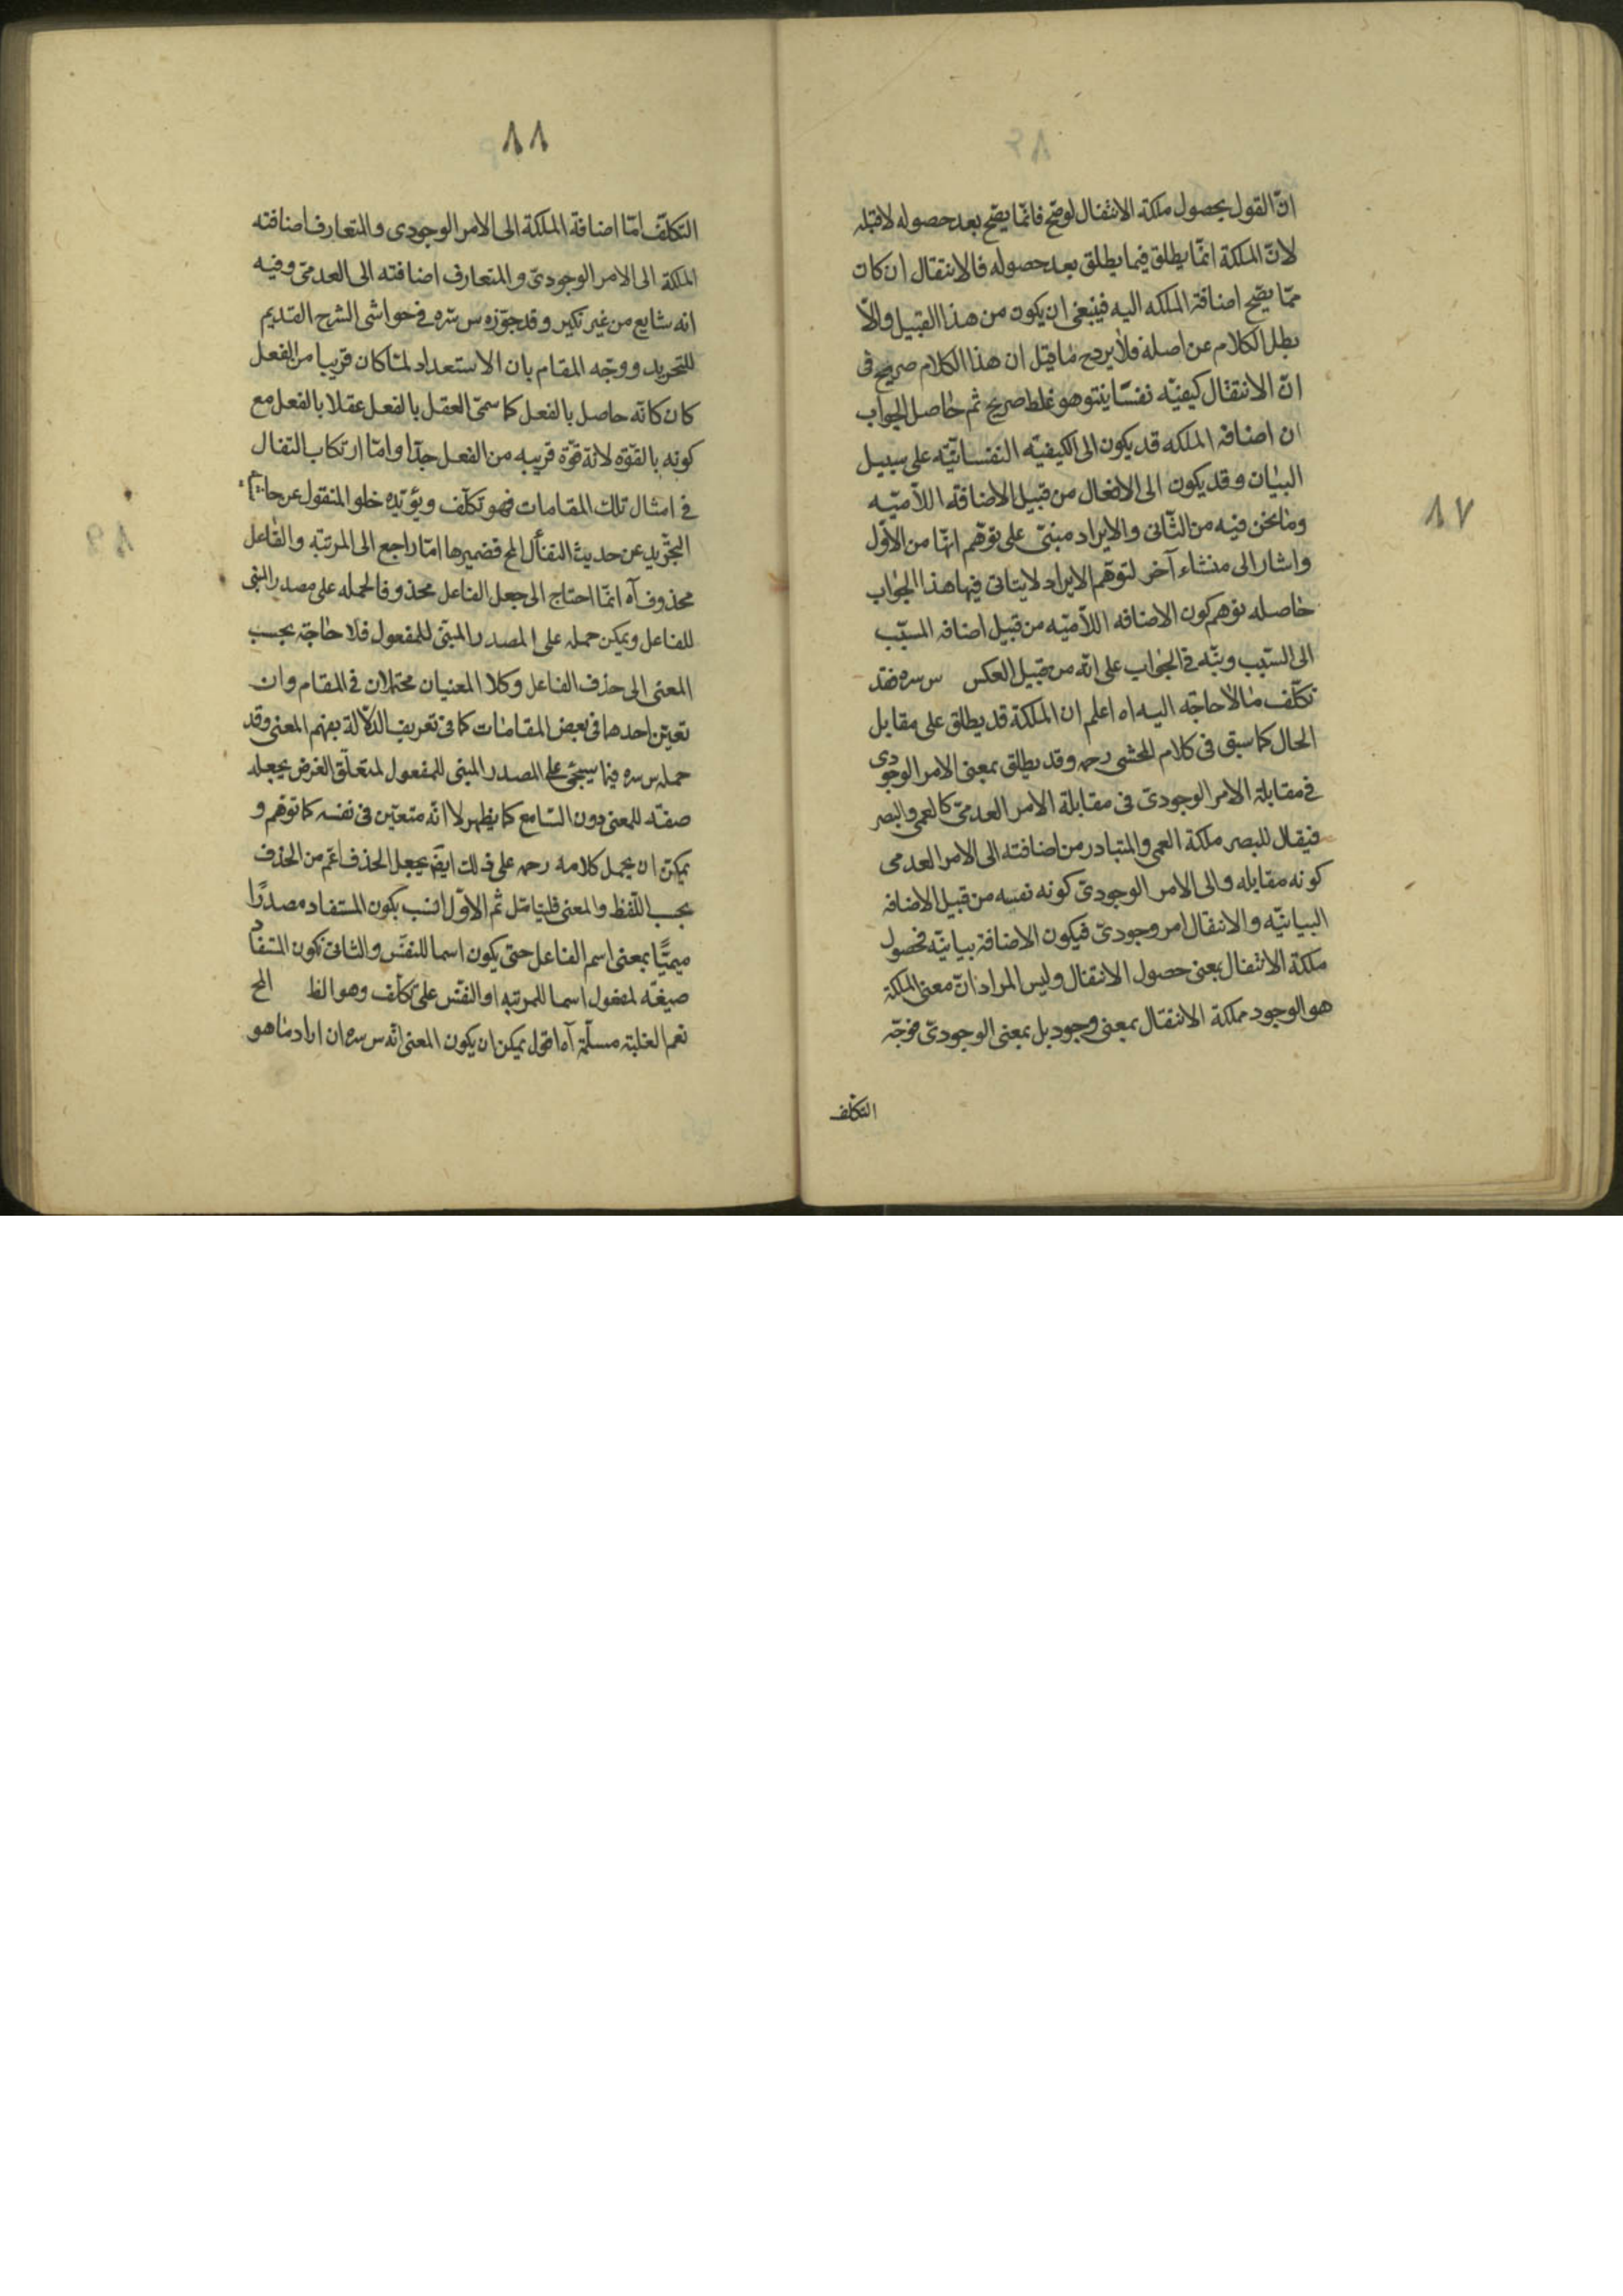 ١٧
انّ القول بحصول ملكة الانتقال لوضح فانّما يصّح بعد حصوله لاقبله
لانّ الملكة انمّا يطلق فيما يطلق بعد حصوله فالانتقال ان كان
ممّا يصّح اضافة الملكه اليه فينبغى ان يكون من هذا القبيل والاّ
بطل الكلام عن اصله فلا يرد ح ما قيل ان هذا الكلام صريح فى
انّ الانتقال كيفيّه نفسّانيّة وهو غلط صريح ثم حاصل الجواب
ان اضافه الملكه قد يكون الى الكيفيّه النفسانيّه على سبيل
البيان وقد يكون الى الافعال من قبيل الاضافة اللاّميّه
وما نحن فيه من الثّانى والايراد مبنىّ على توهّم انّها من الاوّل
واشار الى منشاء آخر لتوهّم الايراد لايتاتى فيها هذا الجواب
حاصله توهم كون الاضافه اللاّميّه من قبيل اضافه المسبّب
الى السّبب وبنّه فى الجواب على انّه من قبيل العكس س سره فقد
تكلّف مالا حاجة اليه اه اعلم ان الملكة قد يطلق على مقابل
الحال كما سبق فى كلام المحشى رحمه وقد يطلق بمعنى الامر الوجودى
فى مقابلة الامر الوجودىّ فى مقابلة الامر العدمىّ كالعمى والبصر
فيقال للبصر ملكة العمى والمتبادر من اضافته الى الامر العدمى
كونه مقابله والى الامر الوجودىّ كونه نفسه من قبيل الاضافه
البيانيّه والانتقال امر وجودىّ فيكون الاضافة بيانيّه فحصول
ملكة الانتقال بمعنى حصول الانتقال وليس المراد انّ معنى الملكة
هو الوجود فملكة الانتقال بمعنى وجود بل بمعنى الوجودىّ فوجّه
التكلّف
١٨
التكلّف امّا اضافة الملكة الى الامر الوجودى والمتعارف اضافته
الملكة الى الامر الوجودىّ والمتعارف اضافته الى العدمىّ وفيه
انه شايع من غير نكير وقد جوّزه س سّره فى حواشى الشرح القديم
للتجريد ووجّه المقام بان الاستعداد لمّا كان قريبا من الفعل
كان كانّه حاصل بالفعل كما سمىّ العقل بالفعل عقلا بالفعل مع
كونه بالقوّه لانّه قوّة قريبه من الفعل جدّا وامّا ارتكاب التفال
فى امثال تلك المقامات فهو تكلّف ويؤيّده خلو المنقول عن
التجرّيد عن حديث التفأل المح قضميرها امّا راجع الى المرتبة والفاعل
محذوف آه انمّا احتاج الى جعل الفاعل محذوفا لحمله على مصدر المبنى
للفاعل ويمكن حمله على المصدر المبنّى للمفعول فلا حاجة بحسب
المعنى الى حذف الفاعل وكلا المعنيان محتملان فى المقام وان
تعيّن احدهما فى بعض المقامات كما فى تعريف الدلالة بفهم المعنى وقد
حمله س سره فيما سيجئ على المصدر المبنى للمفعول لمتعلّق الغرض بجعله
صفته للمعنى دون السّامع كما يظهر لا انّه متعيّن فى نفسه كما توهّم و
يمكن ان يحمل كلامه رحمه على ذلك ايضا بجعل الحذف اعّم من الحذف
بحسب اللّفظ والمعنى فليتامّل ثم الاوّل انسب بكون المستفاد مصدرًا
ميميًّا بمعنى اسم الفاعل حتى يكون اسما للنفس والثانى بكون المستفاد
صيغة لمفعول اسما للمرتبه او النفّس على تكلّف وهو الظ المح
نعم الغلبة مسلّمة آه اقول يمكن ان يكون المعنى انّه س سره ان اراد ما هو